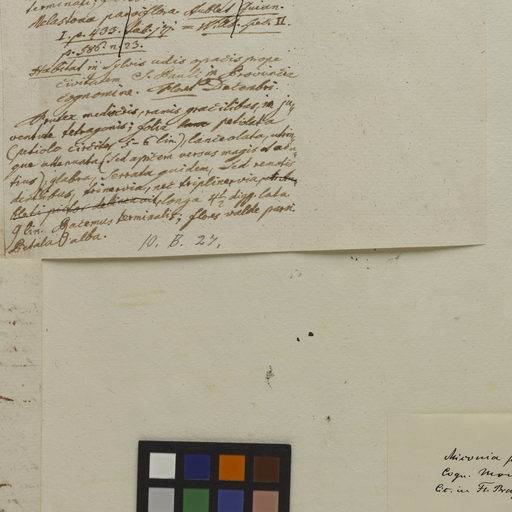 Melastoma parviflora Aublet Guian.
I. p. 433. tab. 171 = Willd. sp. II.
p. 586. n. 23.
Habitat in sylvis udis apricis prope
civitatem S. Pauli in Provincia
cognomine. Floret Decembri.
Frutex mediocris, ramis gracilibus, in ju-
ventute tetragonis; folia petiolata
(petiolo circiter 5-6 lin), lanceolata, utrin-
que attenuata (sed apicem versus magis
), glabra, serrata quidem, sed remotis
dentibus, trinervia, nec triplinervia,
longa 4½ digg. lata
9 lin. Racemus terminalis; flores valde parvi.
Petala 5 alba.
10. B. 27.
Miconia p
Cogn. Mon
Ct. in Fl. Bra